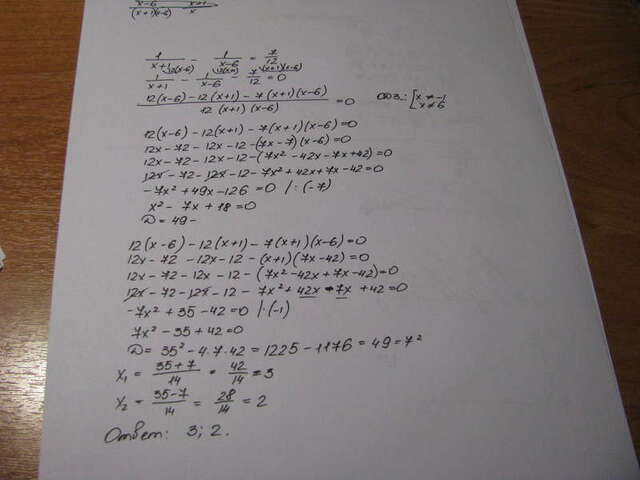 x-6 x+1
(x+1)(x-6) x
1/x+1 - 1/x-6 = 7/12
1/x+1 - 1/x-6 - 7/12 = 0
12(x-6) - 12(x+1) - 7(x+1)(x-6) / 12(x+1)(x-6) = 0 ОДЗ: [x ≠ -1 x ≠ 6
12(x-6) - 12(x+1) - 7(x+1)(x-6) = 0
12x - 72 - 12x - 12 - (7x - 7)(x - 6) = 0
12x - 72 - 12x - 12 - (7x² - 42x - 7x + 42) = 0
12x - 72 - 12x - 12 - 7x² + 42x + 7x - 42 = 0
-7x² + 49x - 126 = 0 /:(-7)
x² - 7x + 18 = 0
D = 49 -
12(x-6) - 12(x+1) - 7(x+1)(x-6) = 0
12x - 72 - 12x - 12 - (x+1)(7x - 42) = 0
12x - 72 - 12x - 12 - (7x² - 42x + 7x - 42) = 0
12x - 72 - 12x - 12 - 7x² + 42x - 7x + 42 = 0
-7x² + 35 - 42 = 0 /·(-1)
7x² - 35 + 42 = 0
D = 35² - 4·7·42 = 1225 - 1176 = 49 = 7²
x₁ = 35+7/14 = 42/14 = 3
x₂ = 35-7/14 = 28/14 = 2
Ответ: 3; 2.